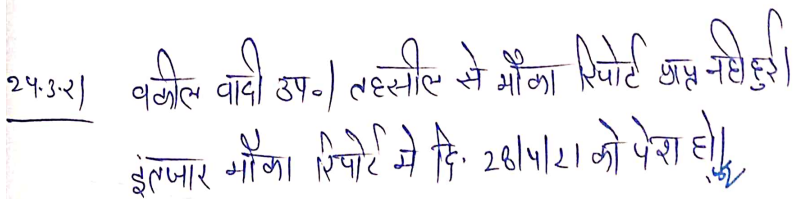 24.3.21 वकील वादी उप०। तहसील से मौका रिपोर्ट प्राप्त नहीं हुई।
इंतजार मौका रिपोर्ट मे दि. 28/4/21 को पेश हो।